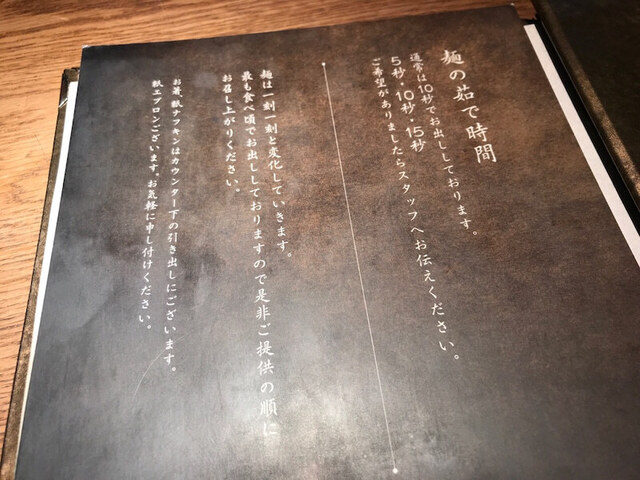 麺の茹で時間
通常は10秒でお出ししております。
5秒・10秒・15秒
ご希望がありましたらスタッフへお伝えください。
麺は一刻一刻と変化していきます。
最も食べ頃でお出ししておりますので是非ご提供の順に
お召し上がりください。
お箸、紙ナフキンはカウンター下の引き出しにございます。
紙エプロンございます。お気軽に申し付けください。